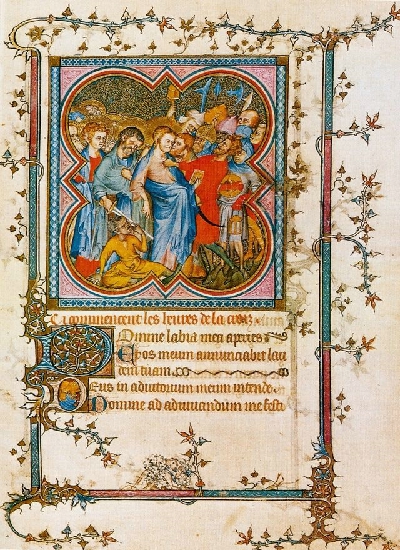 Ci commencent les heures de la croiz
Domine labia mea apries
Et os meum annunciabit lau
dem tuam
Deus in adiutorium meum intende
Domine ad adiuuandum me festi